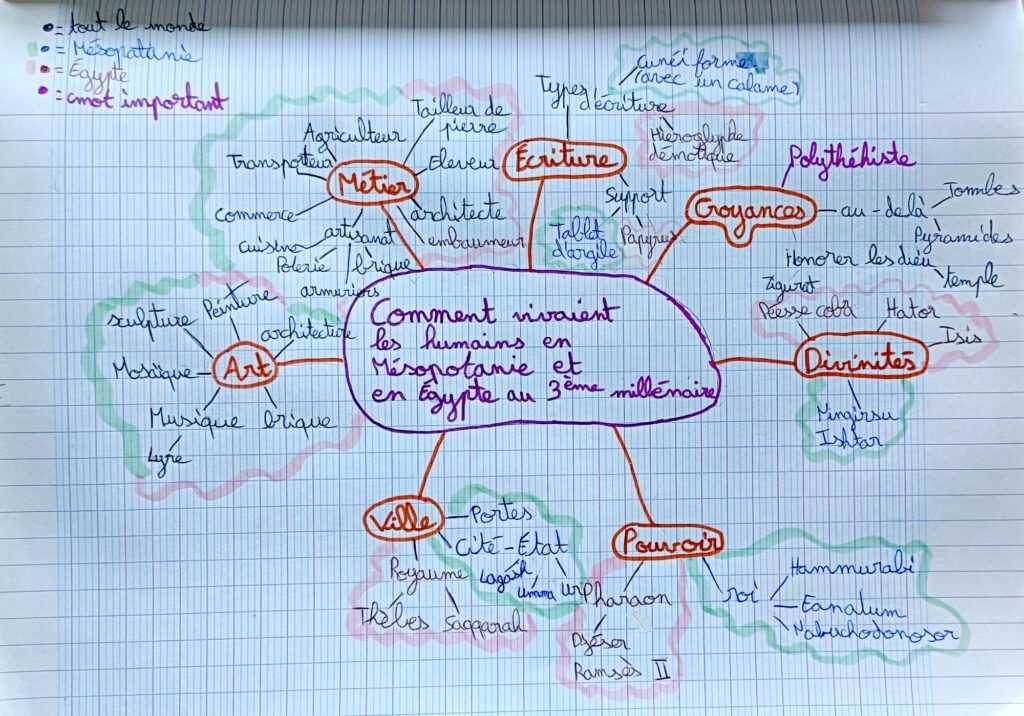 = tout le monde
= Mésopatanie
= Égypte
= cmot important
cunéi forme
(avec un calame)
Types
d'écriture
Hiéroglyphe
démotique
Écriture
Support
Tablet
d'argile
Papyrus
Tailleur de
pierre
Agriculteur
Transporteur
Eleveur
Métier
commerce
architecte
artisanat
embaumeur
cuisine
Poterie
brique
armuriers
Polythéhiste
Croyances
au-delà
Tombes
Pyramides
Honorer les dieu
temple
Zigurat
Déesse cobr
Hator
Isis
Divinités
Ningirsu
Ishtar
Comment vivaient
les humains en
Mésopotanie et
en Égypte au 3ème millénaire
sculpture
Peinture
architecture
Mosaïque
Art
Musique
brique
Lyre
Ville
Portes
Cité-État
Lagash
Umma
Ur
Royaume
Thèbes
Saqqarah
Pouvoir
Pharaon
Djéser
Ramsès II
roi
Hammurabi
Eanatum
Nabuchodonosor